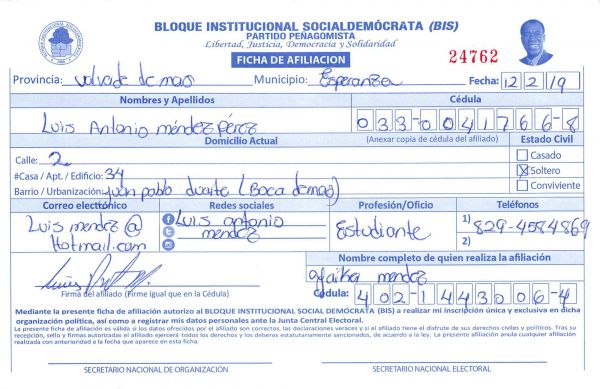 BLOQUE INSTITUCIONAL SOCIALDEMÓCRATA (BIS)
PARTIDO PEÑAGOMISTA
Libertad, Justicia, Democracia y Solidaridad
FICHA DE AFILIACION
24762
Provincia: valvade de mao Municipio: Esperanza Fecha: 12/2/19
Nombres y Apellidos Cédula
Luis Antonio méndez pérez 033-0041766-8
Domicilio Actual (Anexar copia de cédula del afiliado) Estado Civil
Calle: 2 Casado
#Casa / Apt. / Edificio: 34 X Soltero
Barrio / Urbanización: juan pablo duarte (Boca de mao) Conviviente
Correo electrónico Redes sociales Profesión/Oficio Teléfonos
Luis mendez@ Luis antonio Estudiante 1) 829-4584869
Hotmail.com mendez 2)
Nombre completo de quien realiza la afiliación
mendez
Firma del afiliado (Firme igual que en la Cédula) Cédula: 402-1443006-4
Mediante la presente ficha de afiliación autorizo al BLOQUE INSTITUCIONAL SOCIAL DEMÓCRATA (BIS) a realizar mi inscripción única y exclusiva en dicha
organización política, así como a registrar mis datos personales ante la Junta Central Electoral.
La presente ficha de afiliación es válida si los datos ofrecidos por el afiliado son correctos, las declaraciones veraces y si el afiliado tiene el disfrute de sus derechos civiles y políticos. Tras su
recepción, sello y firmas autorizadas el afiliado ejercerá todos los derechos y los deberes estatutariamente sancionados, de acuerdo a la ley. La presente afiliación anula cualquier afiliación
realizada con anterioridad a la fecha que aparece en esta ficha.
SECRETARIO NACIONAL DE ORGANIZACIÓN SECRETARIO NACIONAL ELECTORAL